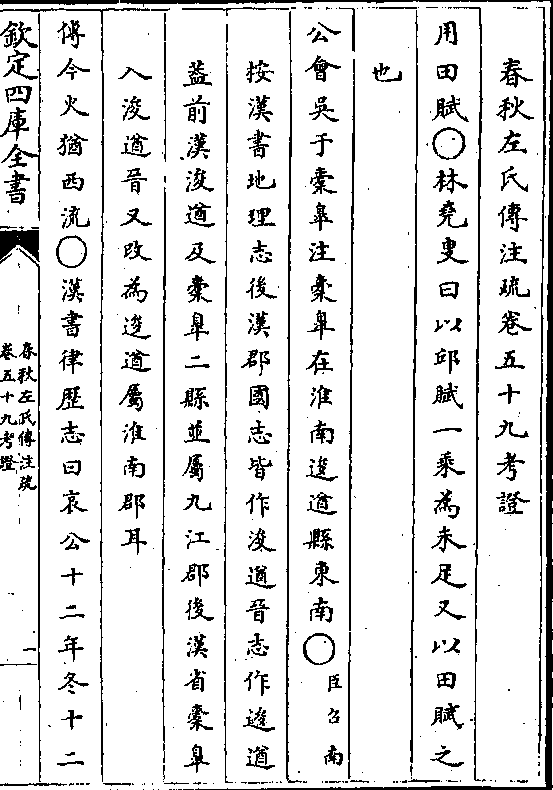 春秋左氏傳注疏卷五十九考證
用田賦○林堯叟曰以邱賦一乘為未足又以田賦之
也
公會吳于橐臯注橐臯在淮南逡遒縣東南○臣召南
按漢書地理志後漢郡國志皆作浚遒晉志作逡遒
葢前漢浚遒及橐臯二縣並屬九江郡後漢省橐臯
入浚遒晉又改為逡遒屬淮南郡耳
傳今火猶西流○漢書律歷志曰哀公十二年冬十二
欽定四庫全書
春秋左氏傳注疏
卷五十九考證
一